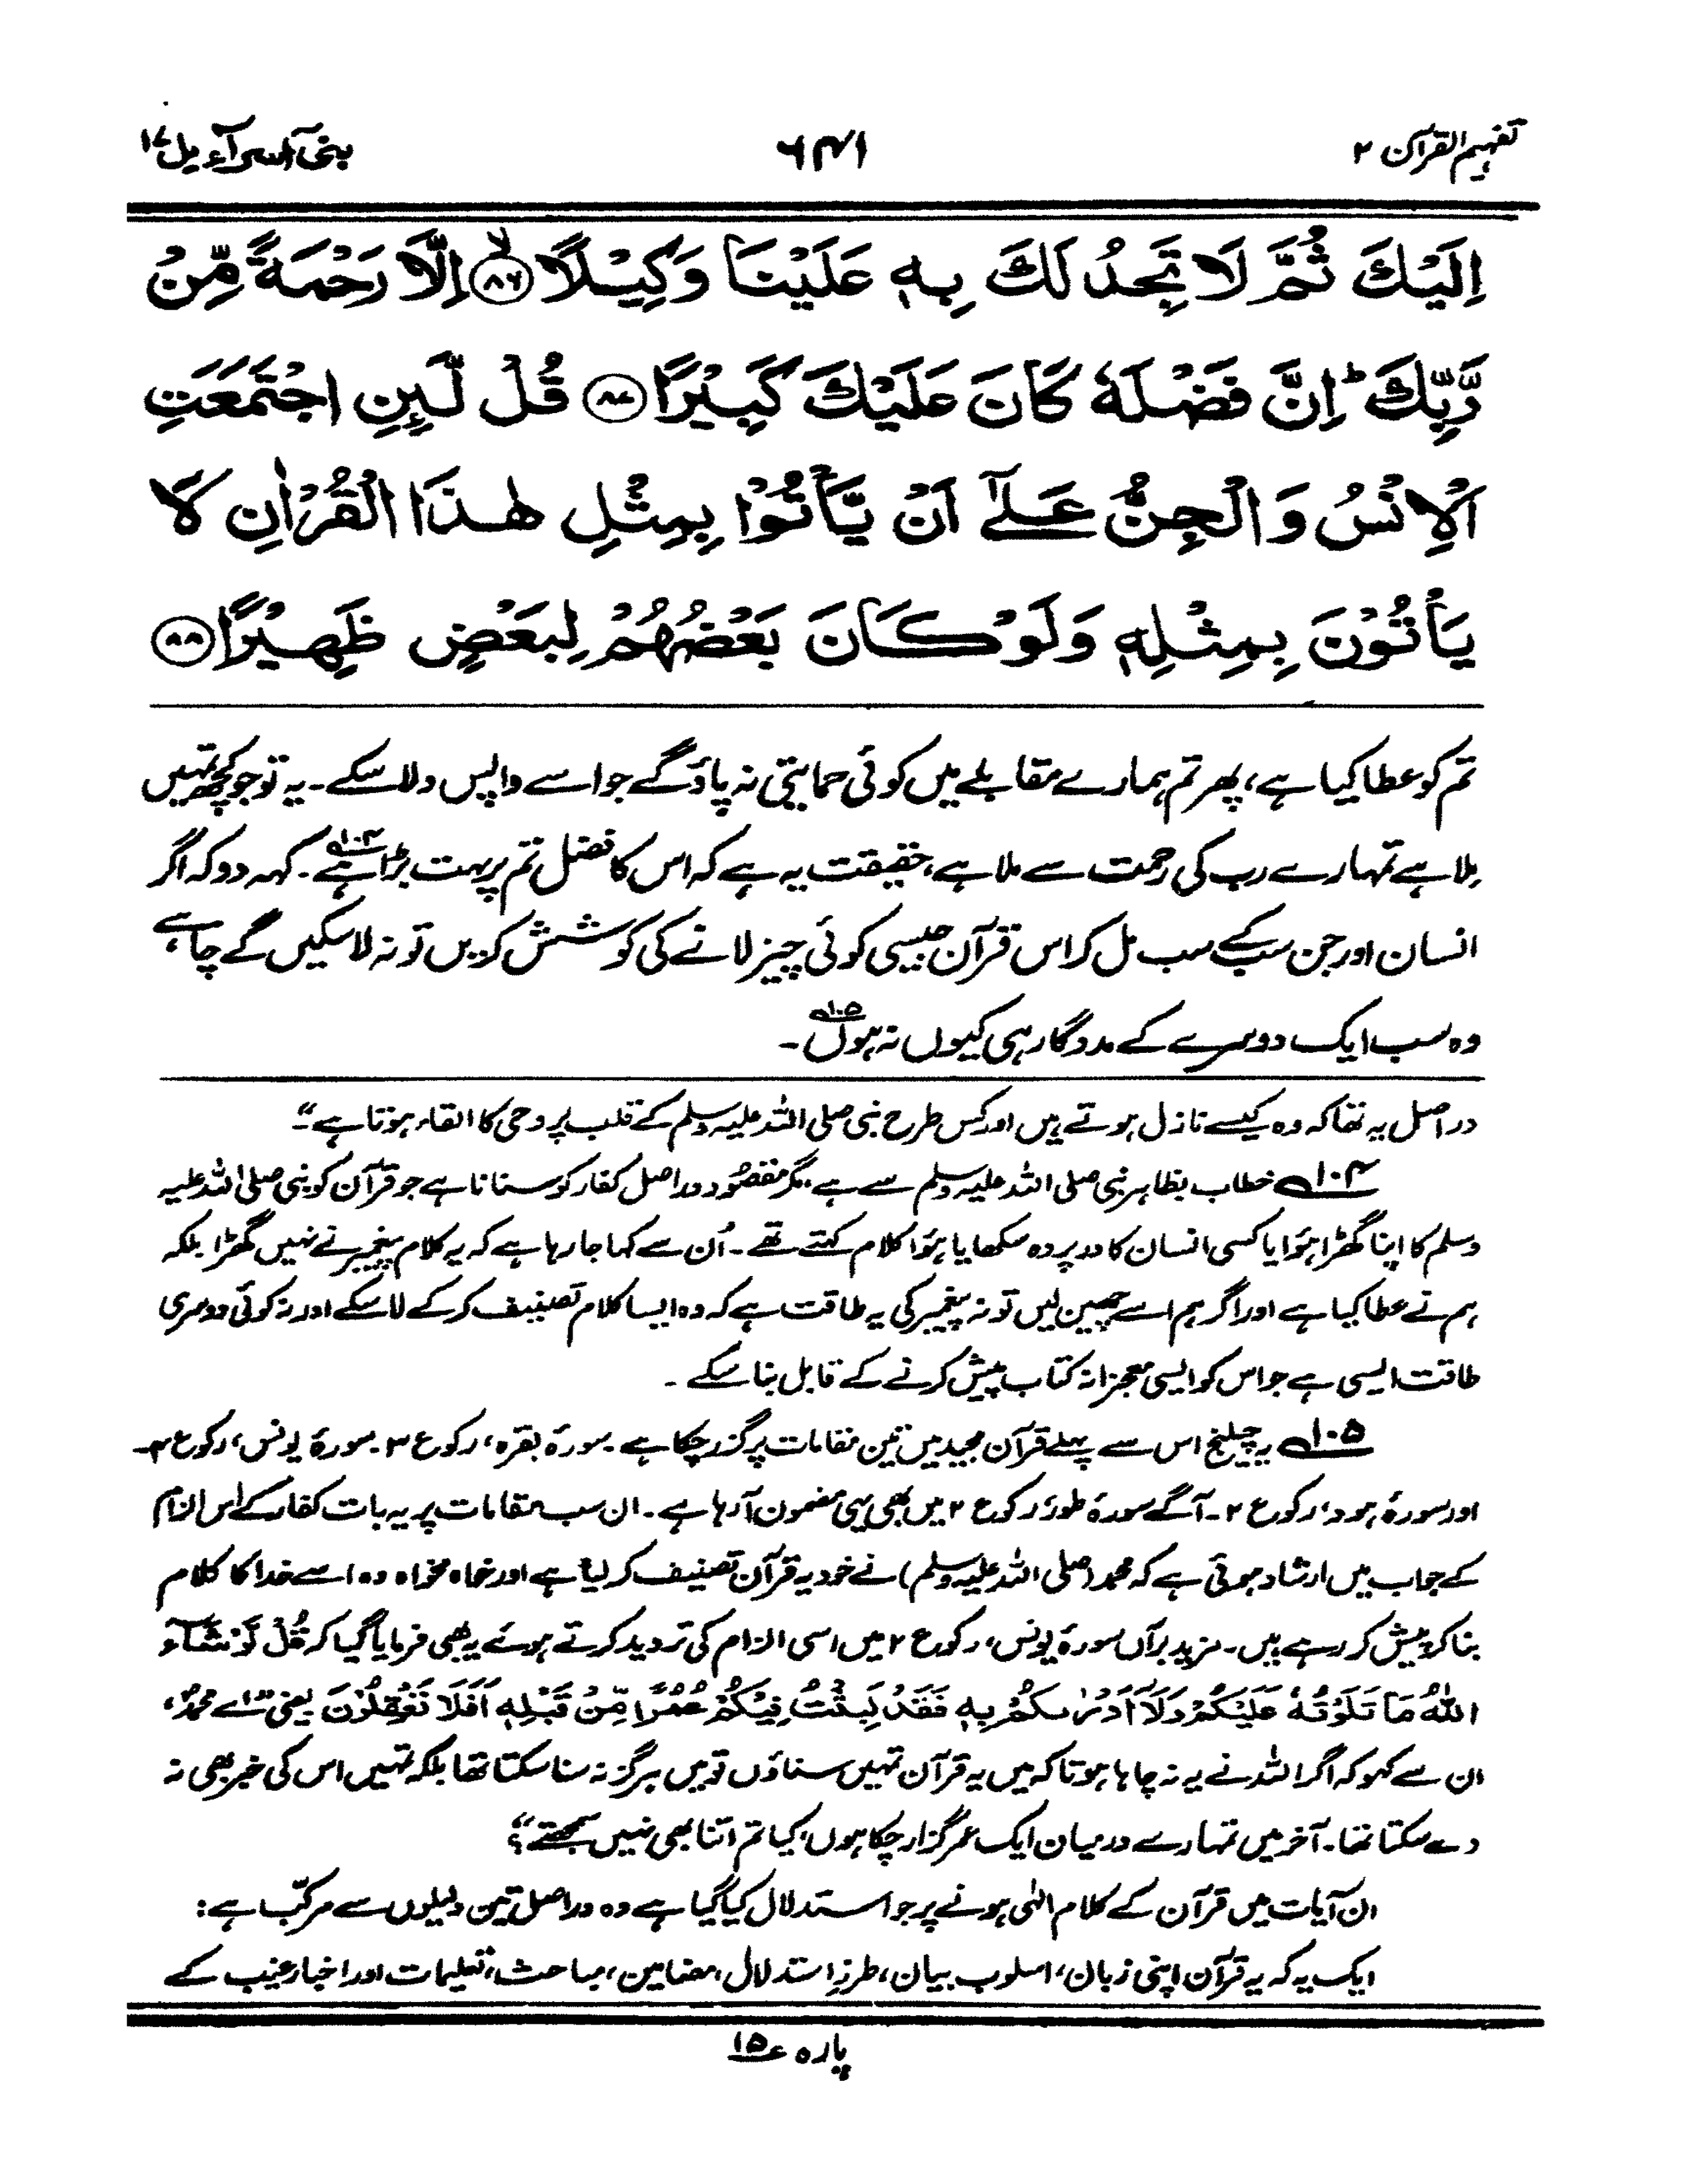 تفہیم القرآن ۲
۶۴۱
بنی اسرآءیل ۱۷
اِلَيْكَ ثُمَّ لَا تَجِدُ لَكَ بِهٖ عَلَيْنَا وَكِيْلًا ﴿۸۶﴾ اِلَّا رَحْمَةً مِّنْ
رَّبِّكَ ؕ اِنَّ فَضْلَهٗ كَانَ عَلَيْكَ كَبِيْرًا ﴿۸۷﴾ قُلْ لَّىِٕنِ اجْتَمَعَتِ
الْاِنْسُ وَ الْجِنُّ عَلٰٓى اَنْ يَّاْتُوْا بِمِثْلِ هٰذَا الْقُرْاٰنِ لَا
يَاْتُوْنَ بِمِثْلِهٖ وَلَوْ كَانَ بَعْضُهُمْ لِبَعْضٍ ظَهِيْرًا ﴿۸۸﴾
تم کو عطا کیا ہے، پھر تم ہمارے مقابلے میں کوئی حمایتی نہ پاؤ گے جو اسے واپس دلا سکے۔ یہ تو جو کچھ تمہیں
ملا ہے تمہارے رب کی رحمت سے ملا ہے، حقیقت یہ ہے کہ اس کا فضل تم پر بہت بڑا ہے۱۰۴۔ کہہ دو کہ اگر
انسان اور جن سب کے سب مل کر اس قرآن جیسی کوئی چیز لانے کی کوشش کریں تو نہ لا سکیں گے چاہے
وہ سب ایک دوسرے کے مددگار ہی کیوں نہ ہوں۱۰۵۔
دراصل یہ تھا کہ وہ کیسے نازل ہوتے ہیں اور کس طرح نبی صلی اللہ علیہ وسلم کے قلب پر وحی کا القاء ہوتا ہے۔"
۱۰۴؎ خطاب بظاہر نبی صلی اللہ علیہ وسلم سے ہے، مگر مقصُود دراصل کفار کو سنانا ہے جو قرآن کو نبی صلی اللہ علیہ
وسلم کا اپنا گھڑا ہوٴا یا کسی انسان کا در پردہ سکھایا ہوٴا کلام کہتے تھے۔ اُن سے کہا جا رہا ہے کہ یہ کلام پیغمبر نے نہیں گھڑا بلکہ
ہم نے عطا کیا ہے اور اگر ہم اسے چھین لیں تو نہ پیغمبر کی یہ طاقت ہے کہ وہ ایسا کلام تصنیف کر کے لا سکے اور نہ کوئی دوسری
طاقت ایسی ہے جو اس کو ایسی معجزانہ کتاب پیش کرنے کے قابل بنا سکے۔
۱۰۵؎ یہ چیلنج اس سے پہلے قرآن مجید میں تین مقامات پر گزر چکا ہے۔ سورۂ بقرہ، رکوع ۳۔ سورۂ یونس، رکوع ۴۔
اور سورۂ ہود، رکوع ۲۔ آگے سورۂ طور، رکوع ۲ میں بھی یہی مضمون آ رہا ہے۔ ان سب مقامات پر یہ بات کفار کے اس الزام
کے جواب میں ارشاد ہوئی ہے کہ محمد (صلی اللہ علیہ وسلم) نے خود یہ قرآن تصنیف کر لیا ہے اور خواہ مخواہ وہ اسے خدا کا کلام
بنا کر پیش کر رہے ہیں۔ مزید برآں سورۂ یونس، رکوع ۲ میں اسی الزام کی تردید کرتے ہوئے یہ بھی فرمایا گیا کہ قُلْ لَّوْ شَآءَ
اللّٰهُ مَا تَلَوْتُهٗ عَلَيْكُمْ وَلَآ اَدْرٰىكُمْ بِهٖ فَقَدْ لَبِثْتُ فِيْكُمْ عُمُرًا مِّنْ قَبْلِهٖ اَفَلَا تَعْقِلُوْنَ یعنی "اے محمدؐ،
ان سے کہو کہ اگر اللہ نے یہ نہ چاہا ہوتا کہ میں یہ قرآن تمہیں سناؤں تو میں ہرگز نہ سنا سکتا تھا بلکہ تمہیں اس کی خبر بھی نہ
دے سکتا تھا۔ آخر میں تمہارے درمیان ایک عمر گزار چکا ہوں، کیا تم اتنا بھی نہیں سمجھتے"؟
ان آیات میں قرآن کے کلام الٰہی ہونے پر جو استدلال کیا گیا ہے وہ دراصل تین دلیلوں سے مرکّب ہے:
ایک یہ کہ یہ قرآن اپنی زبان، اسلوب بیان، طرزِ استدلال، مضامین، مباحث، تعلیمات اور اخبار غیب کے
پارہ ۱۵